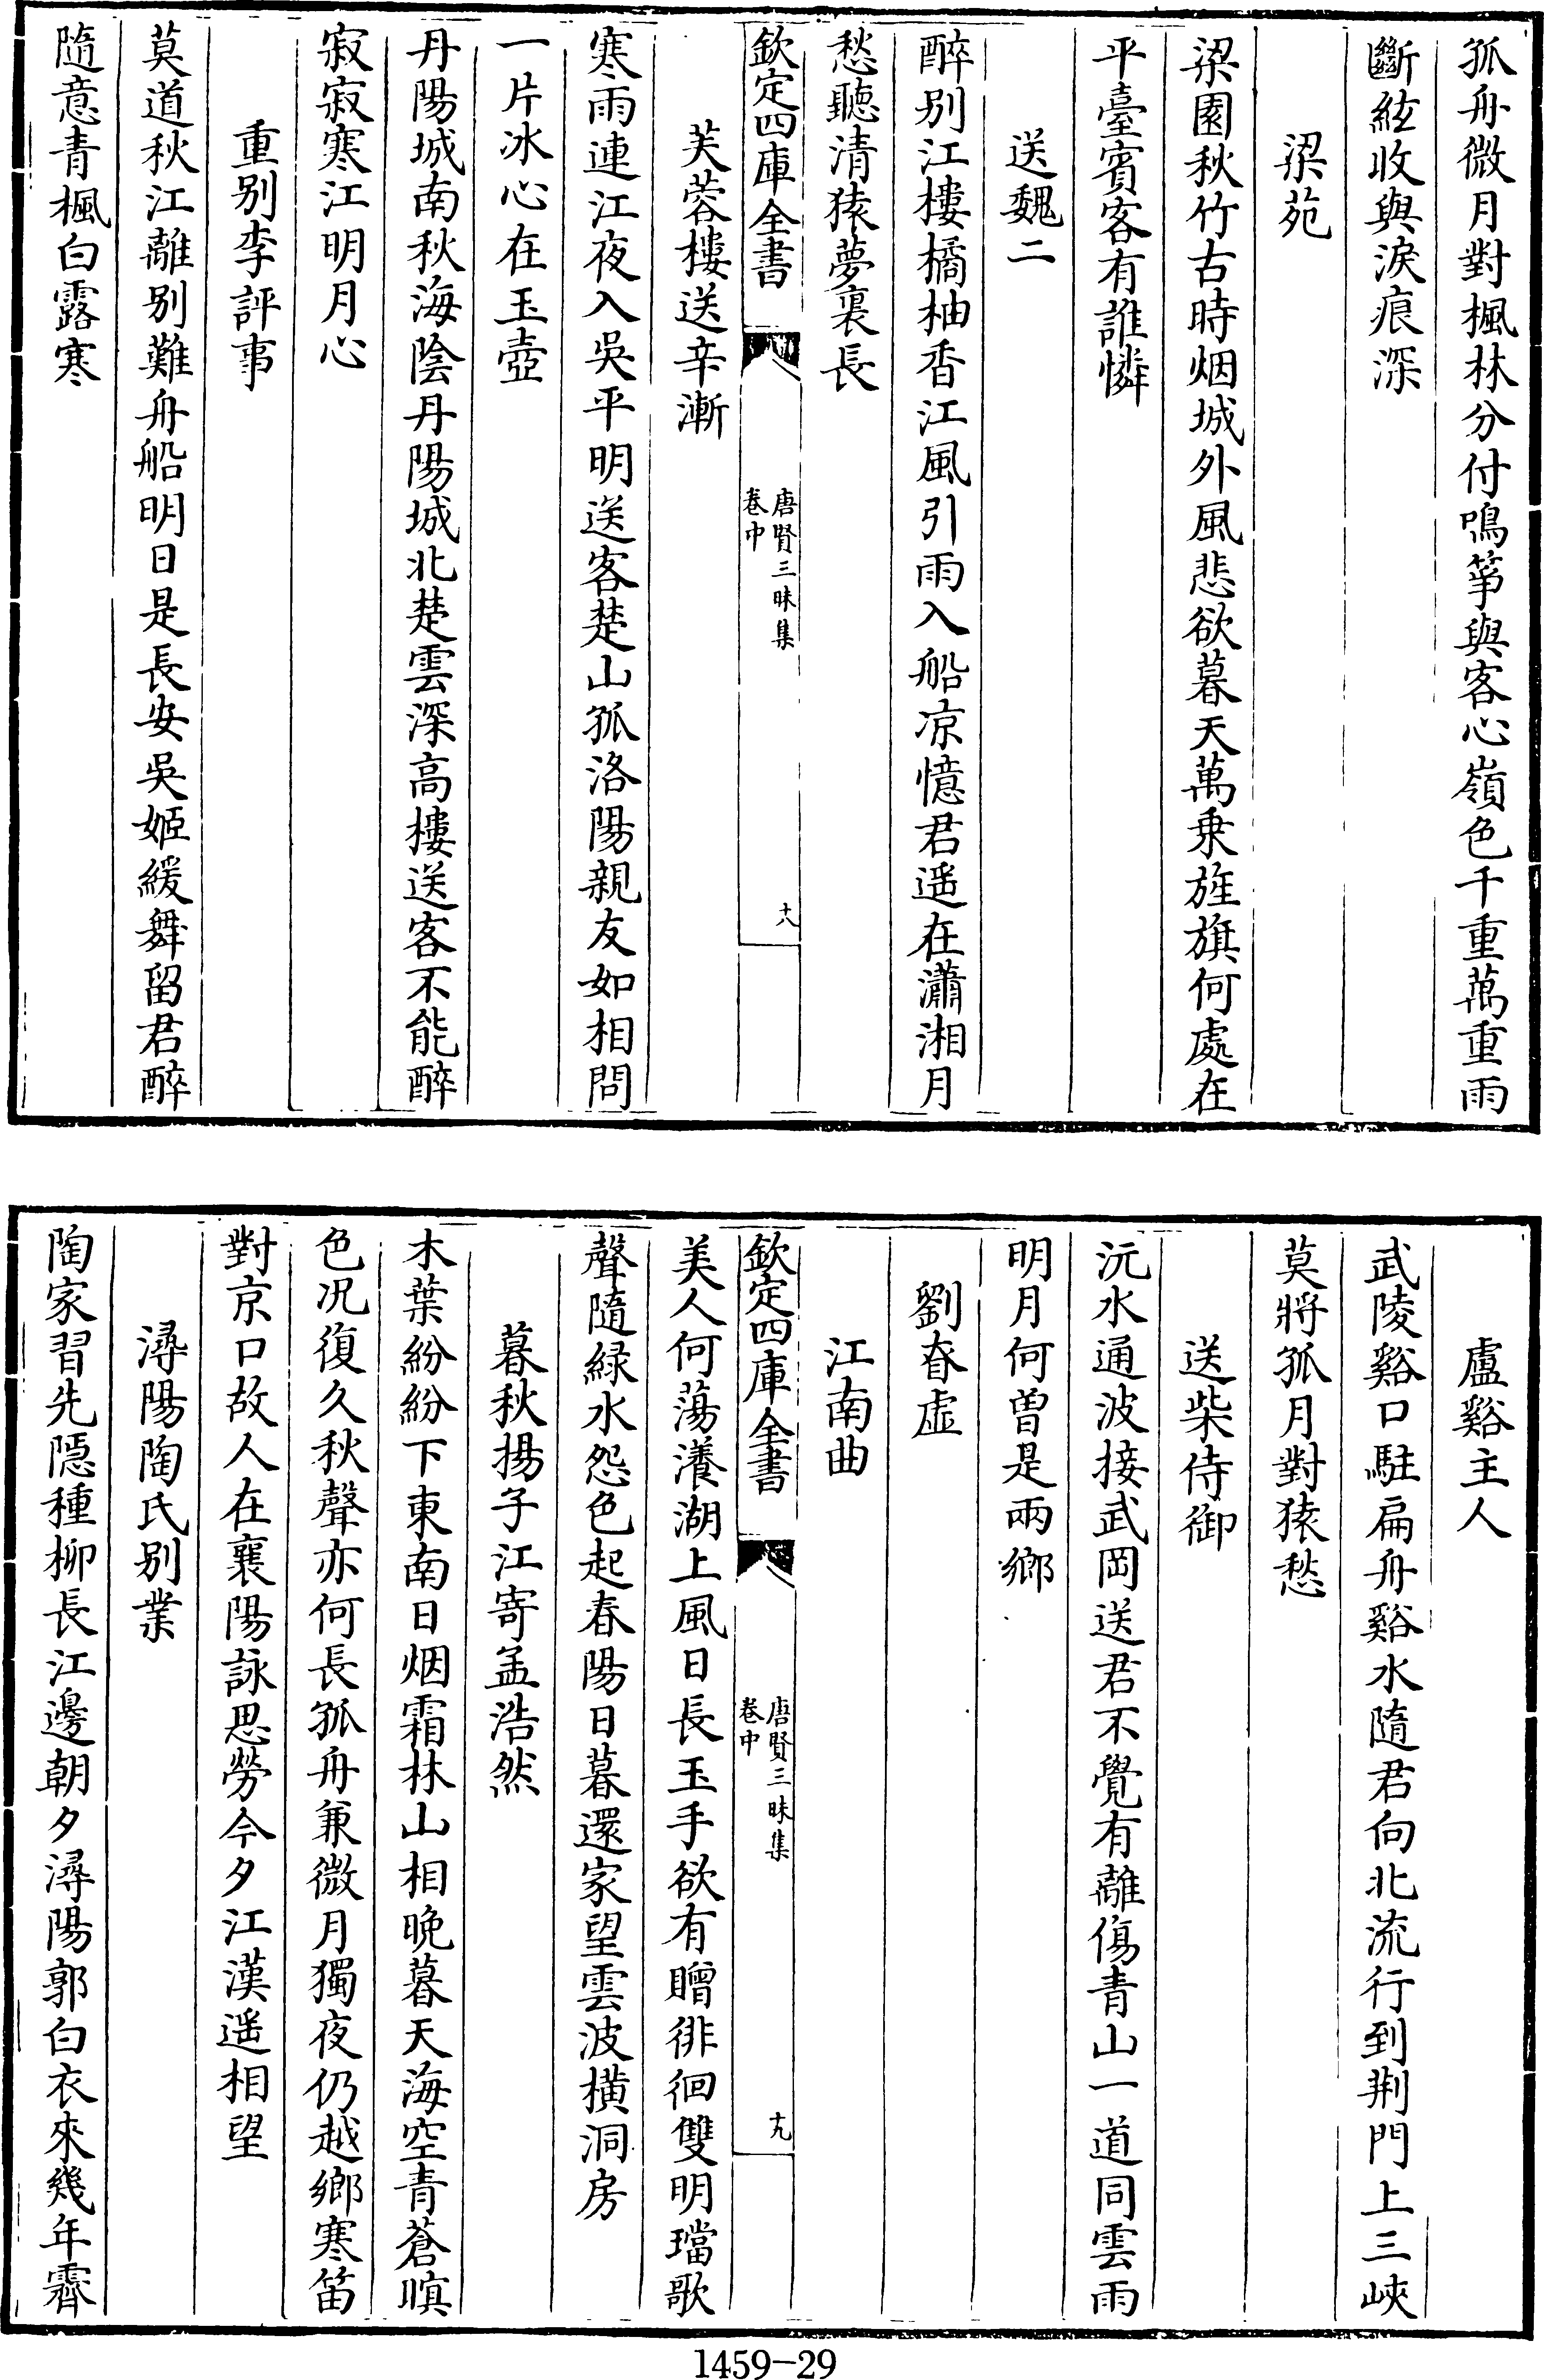 孤舟微月對楓林分付鳴箏與客心嶺色千重萬重雨
斷絃收與淚痕深
梁苑
梁園秋竹古時烟城外風悲欲暮天萬乗旌旗何處在
平臺賓客有誰憐
送魏二
醉别江樓橘柚香江風引雨入船凉憶君遥在瀟湘月
愁聽清猿夢裏長
欽定四庫全書
唐賢三昧集
卷中
十八
芙蓉樓送辛漸
寒雨連江夜入吳平明送客楚山孤洛陽親友如相問
一片冰心在玉壺
丹陽城南秋海陰丹陽城北楚雲深高樓送客不能醉
寂寂寒江明月心
重别李評事
莫道秋江離别難舟船明日是長安吳姬緩舞留君醉
隨意青楓白露寒
盧谿主人
武陵谿口駐扁舟谿水隨君向北流行到荆門上三峽
莫將孤月對猿愁
送柴侍御
沅水通波接武岡送君不覺有離傷青山一道同雲雨
明月何曽是兩鄉
劉眘虚
江南曲
欽定四庫全書
唐賢三昧集
卷中
十九
美人何蕩瀁湖上風日長玉手欲有贈徘徊雙明璫歌
聲隨緑水怨色起春陽日暮還家望雲波横洞房
暮秋揚子江寄孟浩然
木葉紛紛下東南日烟霜林山相晚暮天海空青蒼暝
色况復久秋聲亦何長孤舟兼微月獨夜仍越鄉寒笛
對京口故人在襄陽詠思勞今夕江漢遥相望
潯陽陶氏别業
陶家習先隱種柳長江邊朝夕潯陽郭白衣來幾年霽
1459-29